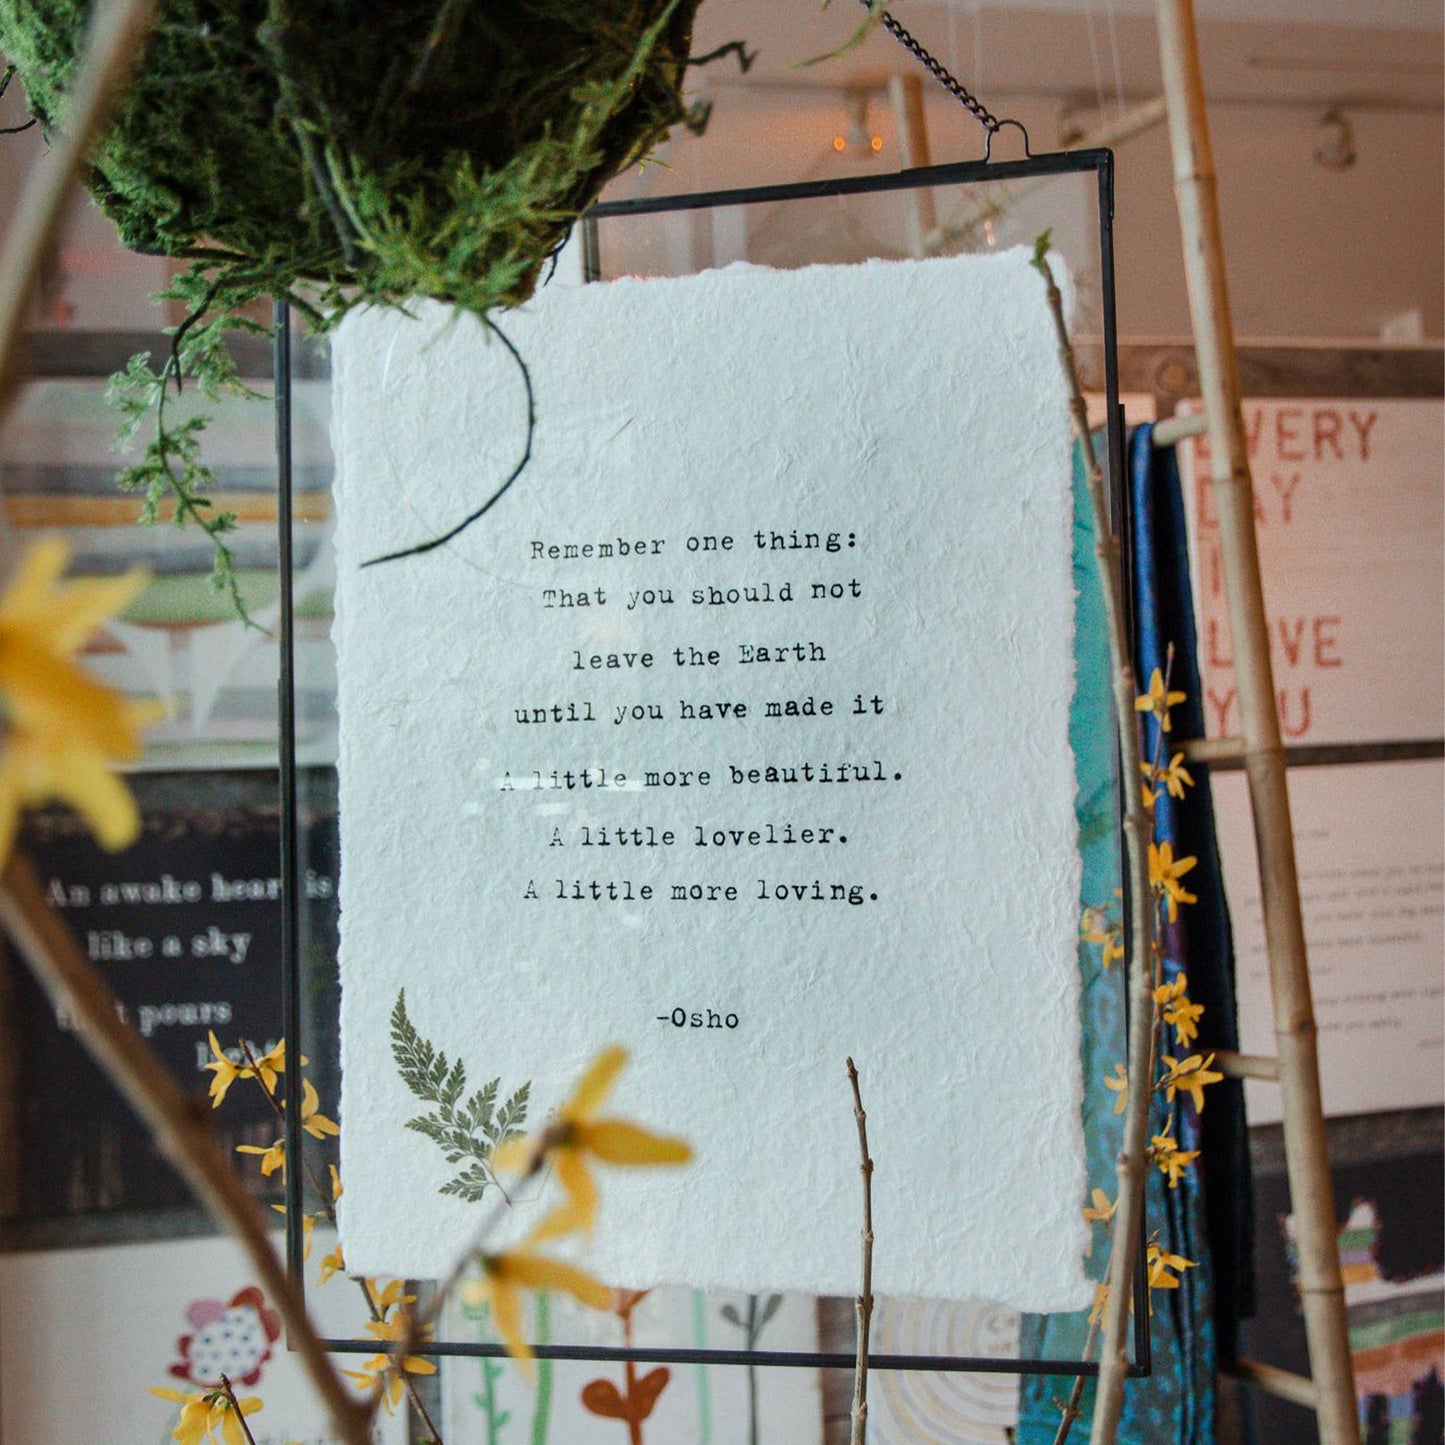 Remember one thing:
That you should not
leave the Earth
until you have made it
A little more beautiful.
A little lovelier.
A little more loving.
-Osho
An awake heart is
like a sky
that pours
light
EVERY
DAY
I
LOVE
YOU